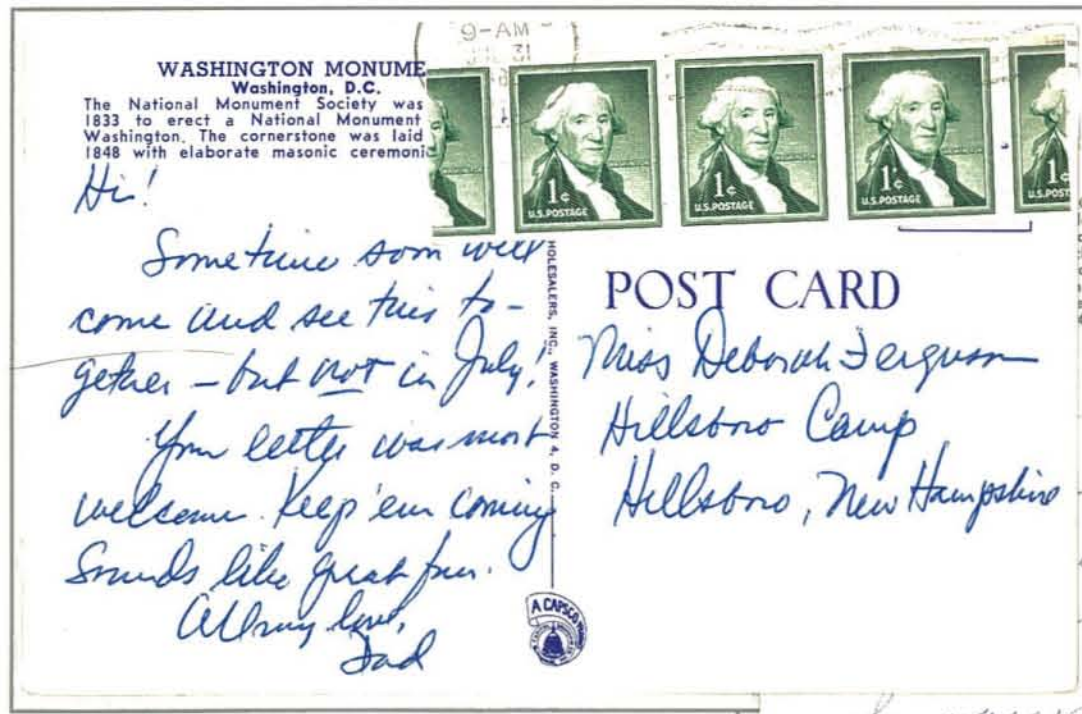 9-AM
JUL 31
WASHINGTON MONUME
Washington, D.C.
The National Monument Society was
1833 to erect a National Monument
Washington. The cornerstone was laid
1848 with elaborate masonic ceremoni
1¢
U.S. POSTAGE
1¢
U.S. POSTAGE
1¢
U.S. POSTAGE
1¢
U.S. POST
Hi!
Sometime soon we'll
come and see this to-
gether – but not in July!
Your letter was most
welcome. Keep 'em coming
Sounds like great fun.
All my love,
Dad
HOLESALERS, INC., WASHINGTON 4, D. C.
A CAPSCO
POST CARD
Miss Deborah Ferguson
Hillsboro Camp
Hillsboro, New Hampshire